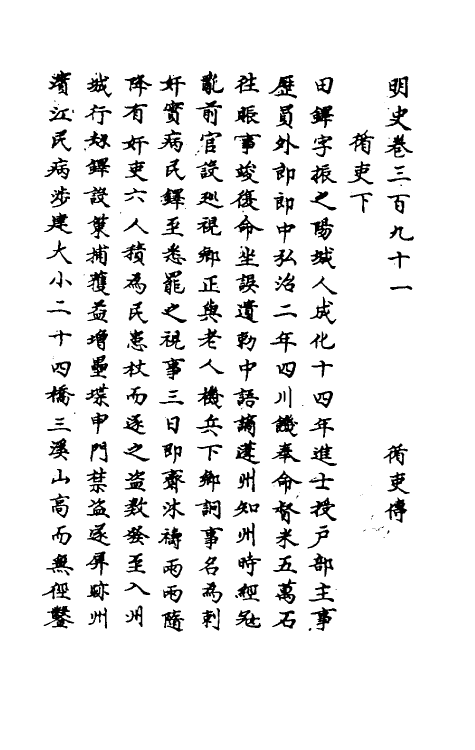 明史卷三百九十一 循吏傳
循吏下
田鐸字振之陽城人成化十四年進士授戶部主事
歷員外郎郎中弘治二年四川饑奉命督米五萬石
往賑事竣復命坐誤遺勅中語謫蓬州知州時經寇
亂前官設廵視鄉正與老人機兵下鄉詗事名為刺
奸實病民鐸至悉罷之視事三日即齋沐禱雨雨隨
降有奸吏六人積為民患杖而逐之盗數發至入州
城行刼鐸設策捕獲益增壘堞申門禁盗遂屏跡州
濱江民病涉建大小二十四橋三溪山高而無徑鑿